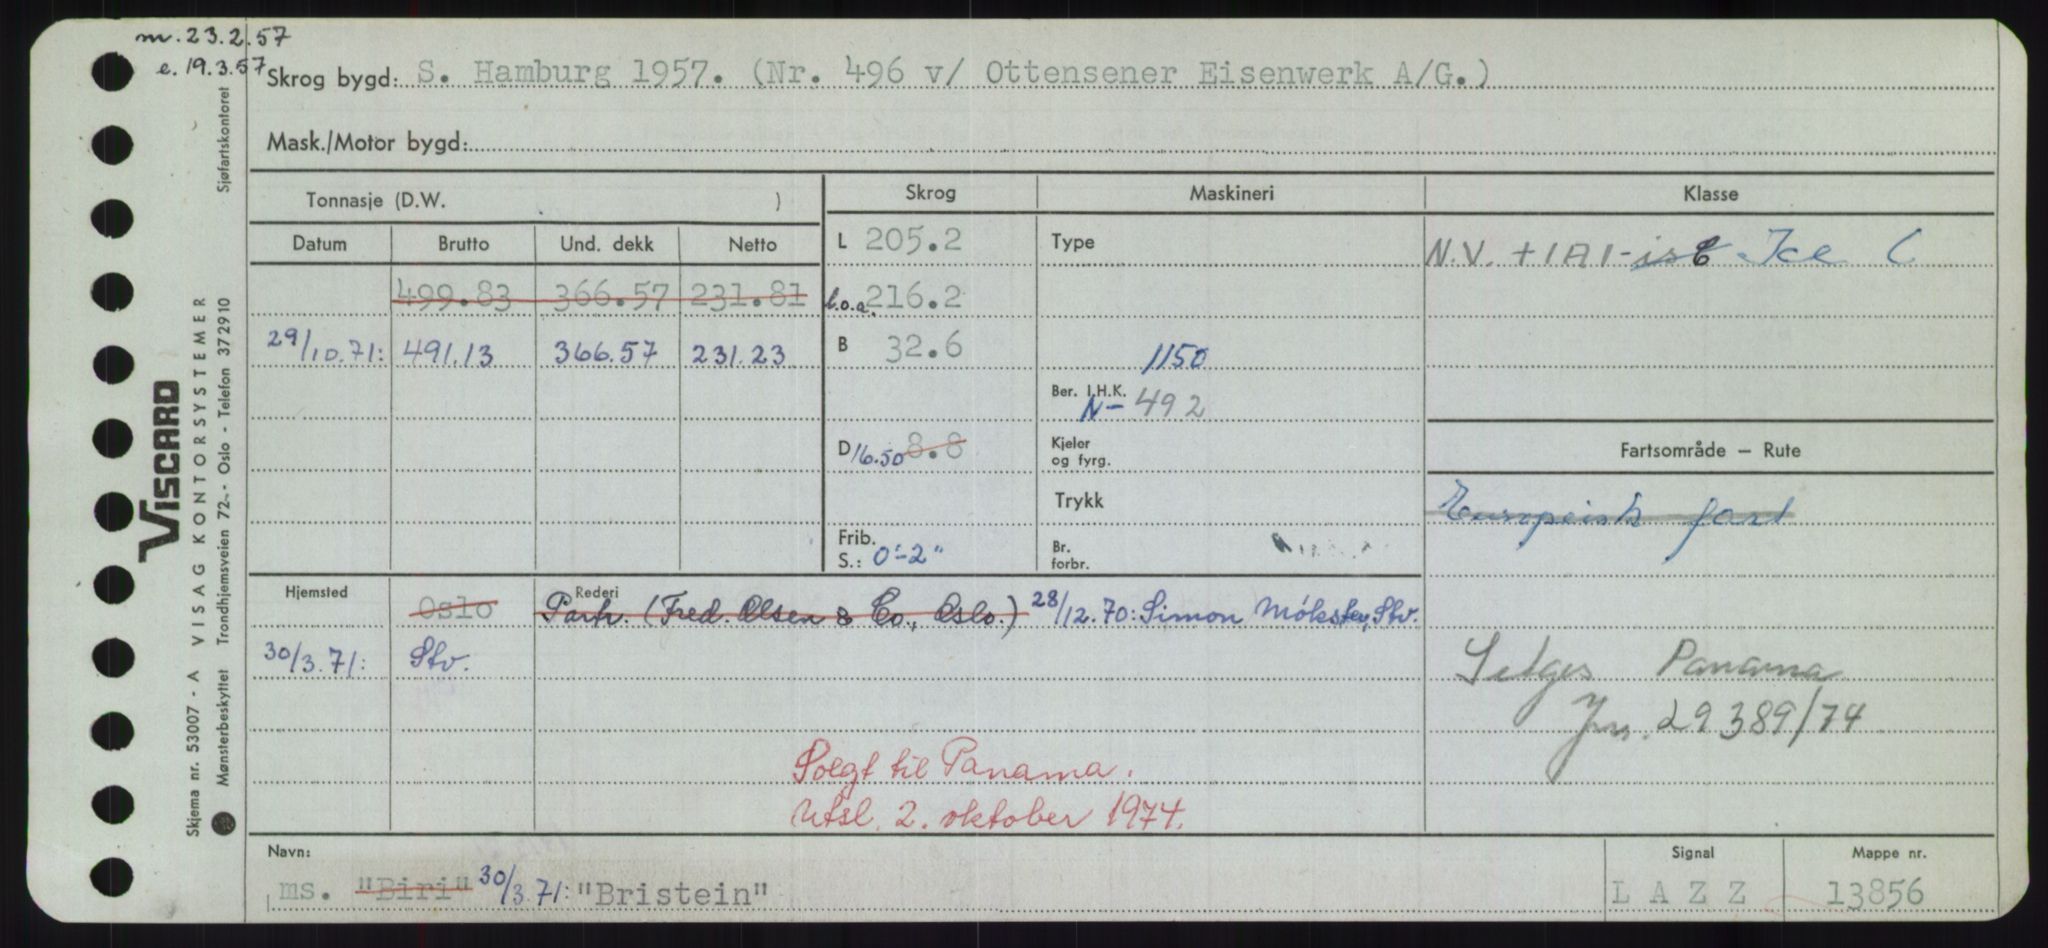 m. 23.2.57
e. 19.3.57
Skrog bygd: S. Hamburg 1957. (Nr. 496 v/ Ottensener Eisenwerk A/G.)
Mask./Motor bygd:
Tonnasje (D.W. )
Skrog
Maskineri
Klasse
Datum Brutto Und. dekk Netto
L 205.2
Type
N.V. +1A1-is C Ice C
499.83 366.57 231.81
l.o.a. 216.2
29/10.71: 491.13 366.57 231.23
B 32.6
1150
Ber. I.H.K.
N- 492
D 16.50 8.8
Kjeler
og fyrg.
Fartsområde – Rute
Trykk
Europeisk fart
Frib.
S.: 0'-2"
Br.
forbr.
Hjemsted
Oslo
Rederi
Partr. (Fred. Olsen & Co., Oslo.) 28/12.70: Simon Møkster, Stv.
30/3.71: Stv.
Selges Panama
Jnr. 29389/74
Solgt til Panama.
Utsl. 2. oktober 1974.
Navn:
ms. "Biri" 30/3.71: "Bristein"
Signal
LAZZ
Mappe nr.
13856
Sjøfartskontoret
VISCARD
VISAG KONTORSYSTEMER
Trondhjemsveien 72 - Oslo - Telefon 372910
Skjema nr. 53007 - A
Mønsterbeskyttet